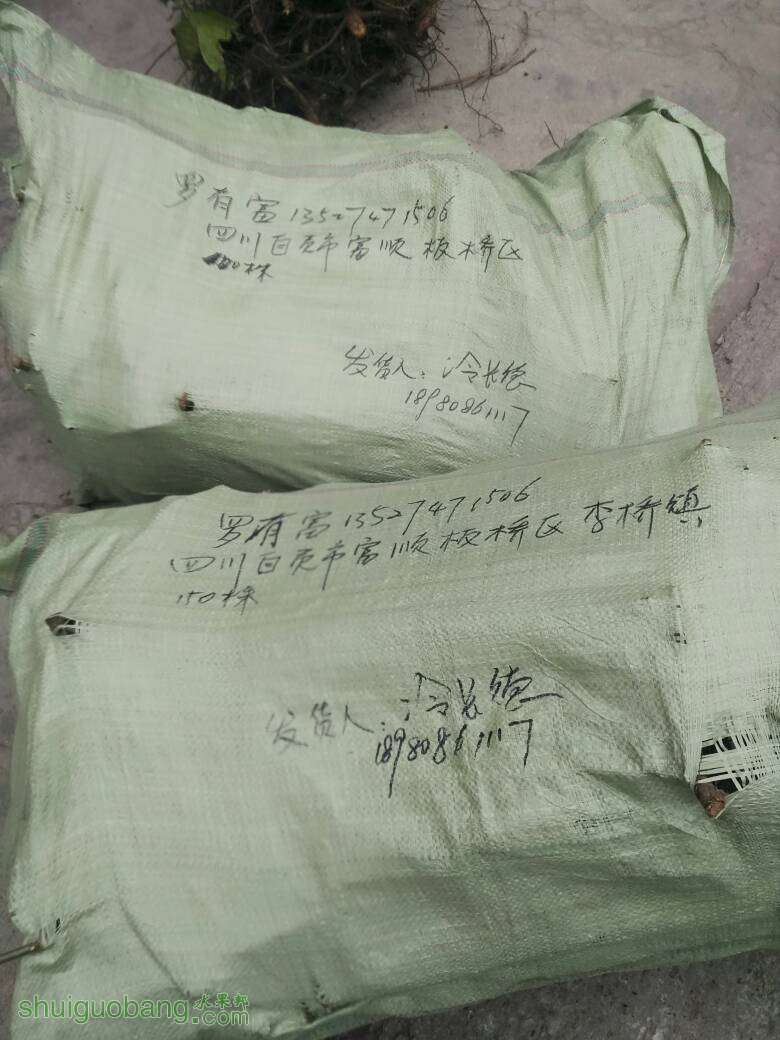 罗有富 13527471506
四川自贡市富顺板桥区
100株
发货人：冷长德
18980861117
罗有富 13527471506
四川自贡市富顺板桥区 李桥镇
150株
发货人：冷长德
18980861117
水果邦
shuiguobang.com